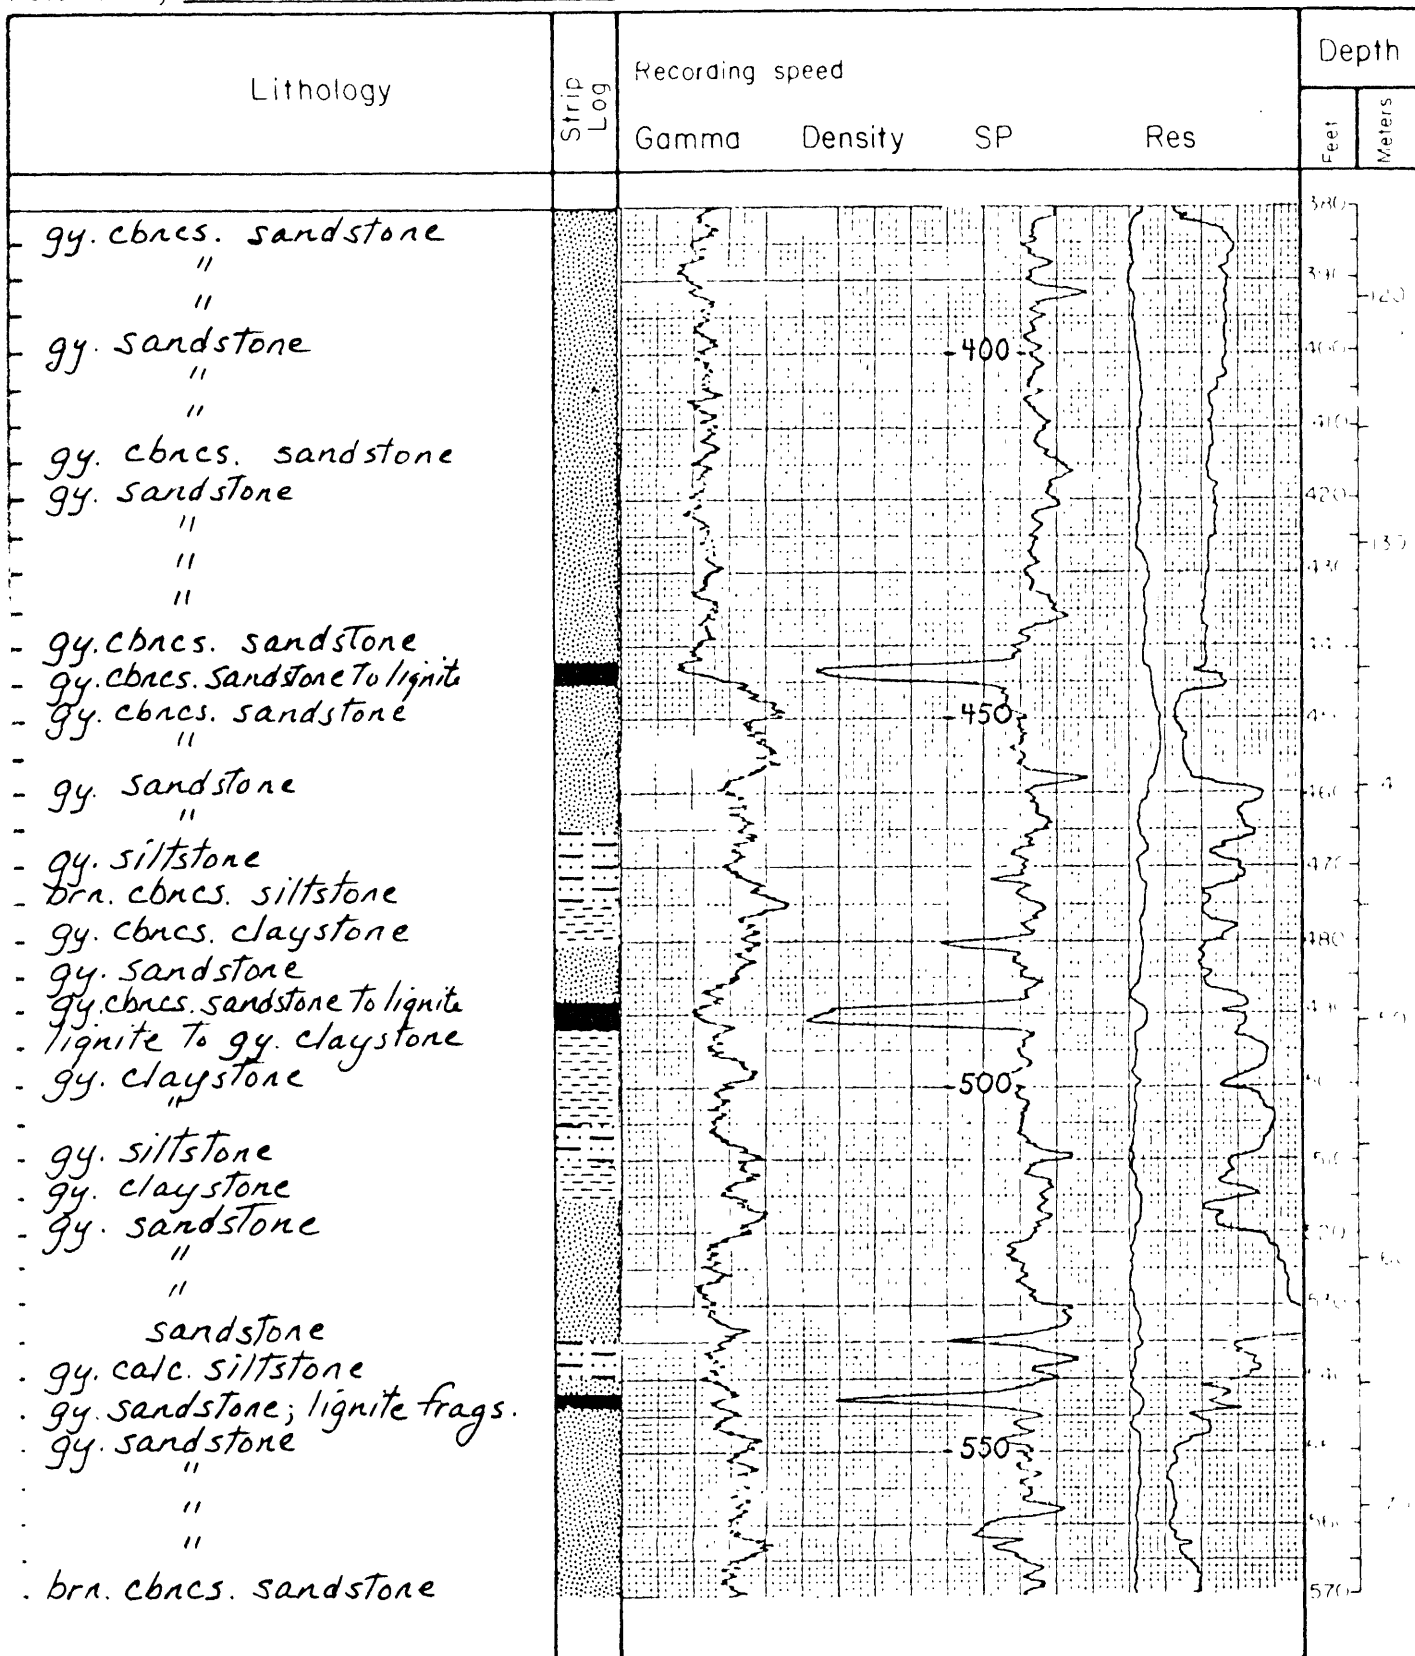 Lithology
Strip Log
Recording speed
Gamma Density SP Res
Depth
Feet
Meters
gy. cbncs. sandstone
"
"
gy. sandstone
"
"
gy. cbncs. sandstone
gy. sandstone
"
"
"
gy. cbncs. sandstone
gy. cbncs. sandstone to lignite
gy. cbncs. sandstone
"
gy. sandstone
"
gy. siltstone
brn. cbncs. siltstone
gy. cbncs. claystone
gy. sandstone
gy. cbncs. sandstone to lignite
lignite to gy. claystone
gy. claystone
"
gy. siltstone
gy. claystone
gy. sandstone
"
"
sandstone
gy. calc. siltstone
gy. sandstone; lignite frags.
gy. sandstone
"
"
"
brn. cbncs. sandstone
400
450
500
550
380
390
400
410
420
430
460
470
480
570
120
130